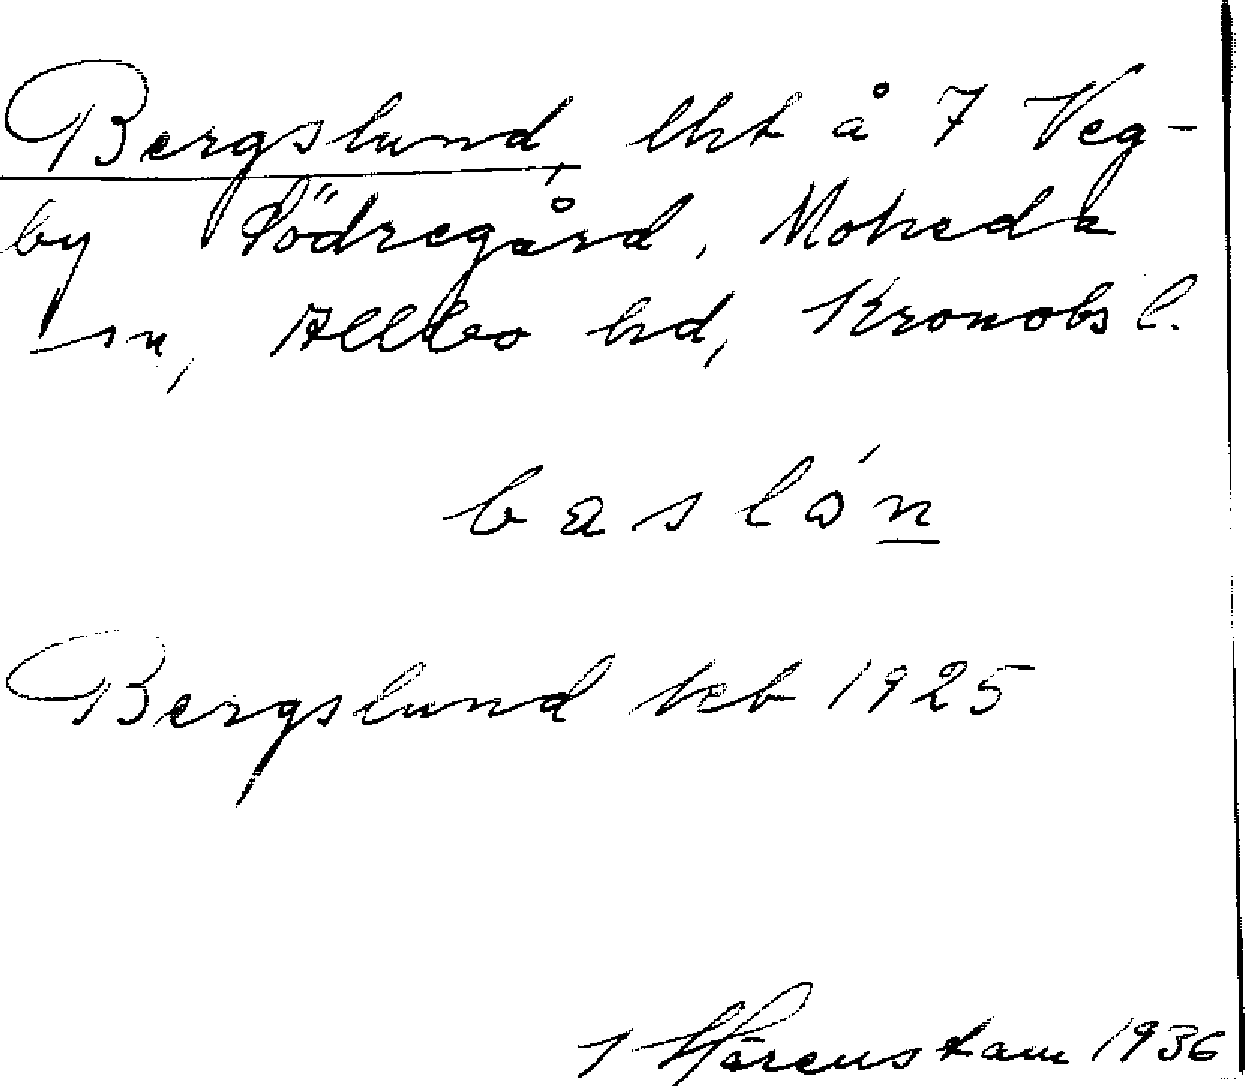 Bergslund, lht å 7 Veg-
by Södregård, Moheda
sn, Allbo hd, Kronobs l.
baslón
Bergslund kb 1925
J Hårenstam 1936